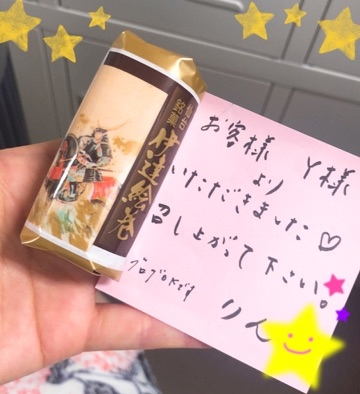 仙台
銘菓
伊達絵巻
お客様 Y様
より
いただきました♡
召し上がって下さい。
ブログOKです
りん